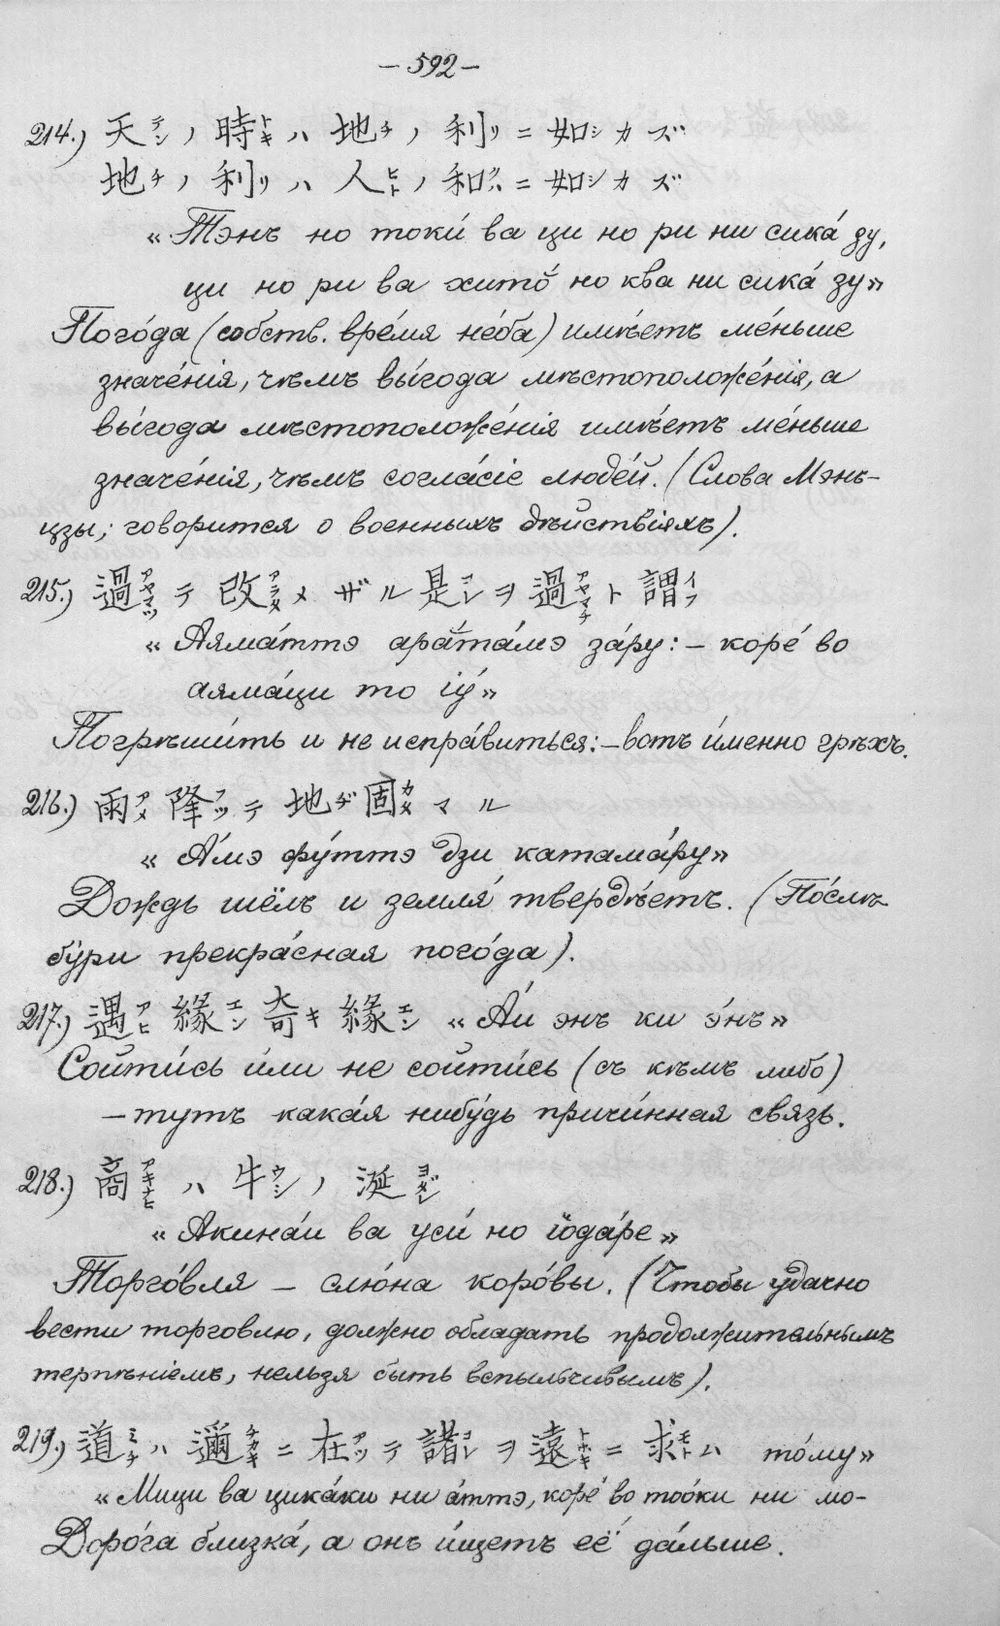 – 592 –
214.) 天テンノ時トキハ地チノ利リニ如シカズ
地チノ利リハ人ヒトノ和クハニ如シカズ
«Тэнъ но токи́ ва ци но ри ни сика́ ду,
ци но ри ва хито̆ но ква ни сика́ зу»
Пого́да (собств. вре́мя не́ба) имѣ́етъ ме́ньше
значе́нія, чѣмъ вы́года мѣстоположе́нія, а
вы́года мѣстоположе́нія имѣ́етъ ме́ньше
значе́нія, чѣмъ согла́сіе люде́й. (Слова Мэнъ-
цзы; говорится о военныхъ дѣйствіяхъ).
215.) 過アヤマツテ改アラタメメザル是コレヲ過アヤマチト謂イフ
«Аяма́ттэ арӑта́мэ за́ру: – коре́ во
аяма́ци то ію́»
Погрѣши́ть и не испра́виться: – вотъ и́менно грѣхъ.
216.) 雨アメ降フツテ地ヂ固カタマル
«А́мэ фу́ттэ дзи катама́ру»
Дождь шёлъ и земля́ твердѣ́етъ. (По́слѣ
бу́ри прекра́сная пого́да).
217.) 遇アヒ緣エン奇キ緣エン «А́и энъ ки э́нъ»
Сойти́сь и́ли не сойти́сь (съ кѣмъ либо)
– тутъ кака́я нибу́дь причи́нная связь.
218.) 商アキナヒハ牛ウシノ涎ヨダレ
«Акина́и ва уси́ но іода́ре»
Торго́вля – слю́на коро́вы. (Чтобы уда́чно
вести торговлю, должно обладать продолжительнымъ
терпѣніемъ, нельзя быть вспыльчивымъ).
219.) 道ミチハ邇チカキニ在アツテ諸コレヲ遠トホキニ求モトム то́му»
«Мици ва цика́ки ни а́ттэ, коре́ во тоо́ки ни мо-
Доро́га близка́, а онъ и́щетъ её да́льше.